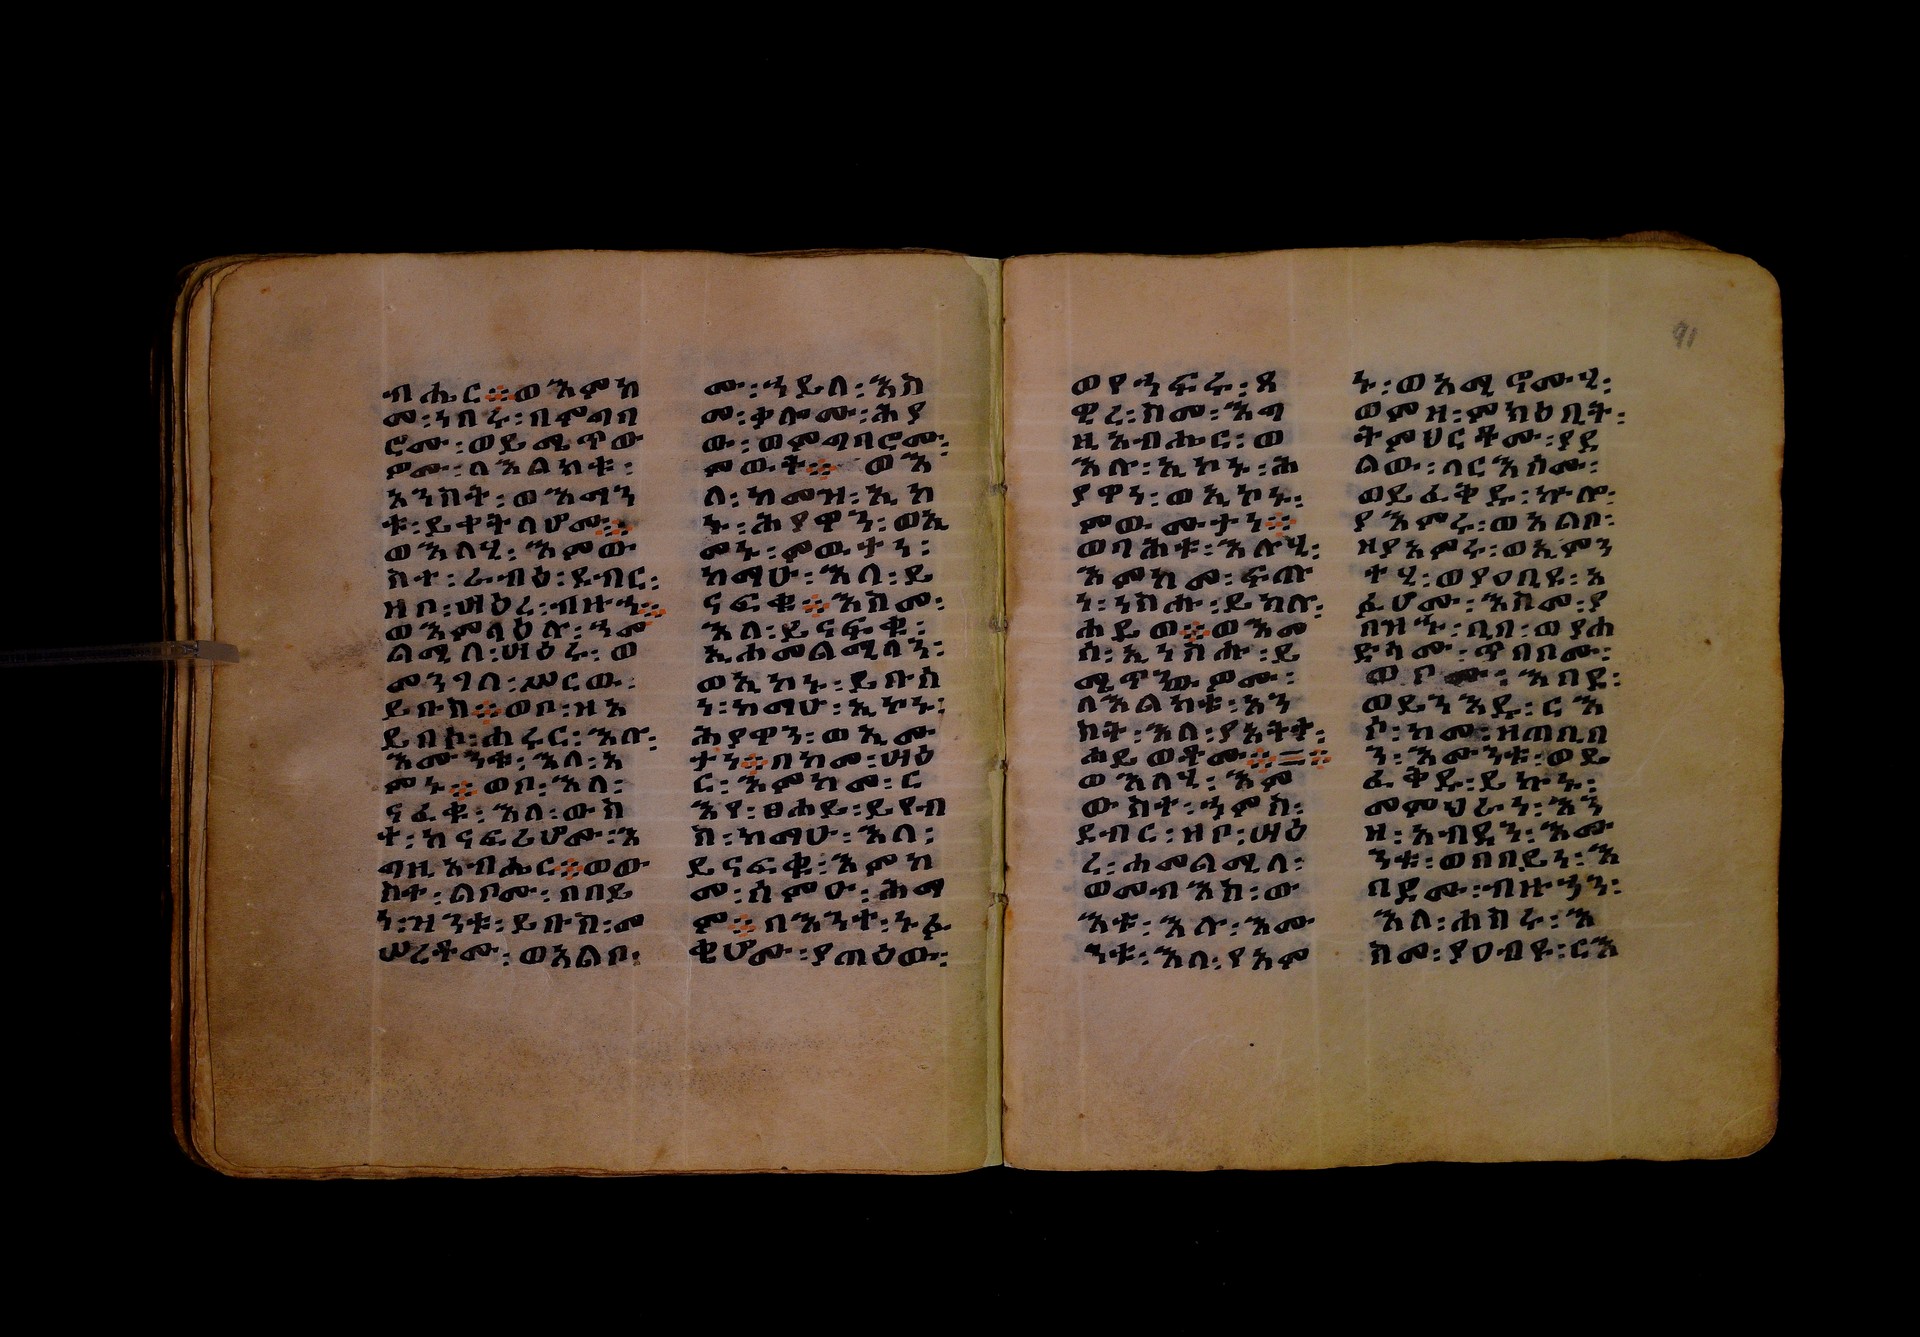 ብሔር፨ወእምከ
መ፡ነበሩ፡በምግባ
ሮሙ፡ወይሜጥው
ዎሙ፡ለእልክቱ፡
እንስት፡ወእማን
ቱ፡ይቀትላሆሙ፨
ወእለሂ፡እምው
ስተ፡ራብዕ፡ደብር፡
ዘቦ፡ሣዕረ፡ብዙኅ፨
ወእምላዕሉ፡ኀመ
ልሚለ፡ሣዕሩ፡ወ
መንገለ፡ሥርው፡
ይቡስ፨ወቦ፡ዘእ
ይበኮ፡ሐሩር፡እሉ፡
እሙንቱ፡እለ፡አ
ምኑ፨ወቦ፡እለ፡
ናፈቁ፡እለ፡ውስ
ተ፡ከናፍሪሆሙ፡እ
ግዚአብሔር፨ወው
ስተ፡ልቦሙ፡በበይ
ነ፡ዝንቱ፡ይቡስ፡መ
ሠረቶሙ፡ወአልቦ፡
ሙ፡ኀይለ፡እስ
መ፡ቃሎሙ፡ሕያ
ው፡ወምግባሮሙ፡
ምውት፨ወእ
ለ፡ከመዝ፡ኢኮ
ኑ፡ሕያዋን፡ወኢ
መኑ፡ምዉተነ፡
ከማሁ፡እለ፡ይ
ናፍቁ፨እስመ፡
እለ፡ይናፍቁ፡
ኢሐመልሚላን፡
ወኢኮኑ፡ይቡስ
ነ፡ከማሁ፡ኢኮኑ፡
ሕያዋን፡ወኢሙ
ታነ፨በከመ፡ሣዕ
ር፡እምከመ፡ር
እየ፡ፀሐይ፡ይየብ
ስ፡ከማሁ፡እለ፡
ይናፍቁ፡እምከ
መ፡ሰምዑ፡ሕማ
ም፨በእንተ፡ኑፋ
ቂሆሙ፡ያጠዕው፡
ወየኀፍሩ፡ጸ
ዊረ፡ስመ፡እግ
ዚአብሔር፡ወ
እሉ፡ኢኮኑ፡ሕ
ያዋነ፡ወኢኮኑ፡
ምውታነ፨
ወባሕቱ፡እሉሂ፡
እምከመ፡ፍጡ
ነ፡ነስሑ፡ይከሉ፡
ሐይወ፨ወእመ
ሰ፡ኢነስሑ፡ይ
ሜጥንውዎሙ፡
ለእልክቱ፡አን
ስት፡እለ፡ያአትቱ፡
ሐይወቶሙ፨=፨
ወእለሂ፡እም
ውስተ፡ኀምስ፡
ደብር፡ዘቦ፡ሣዕ
ረ፡ሐመልሚለ፡
ወመብእስ፡ው
እቱ፡እሉ፡እሙ
ንቱ፡እለ፡የአም
ኑ፡ወእሚኖሙሂ፡
ወምዘ፡ምክዕቢት፡
ትምህርቶሙ፡ያደ
ልው፡ለርእሰሙ፡
ወይፈቅዱ፡ኵሎ፡
ያእምሩ፡ወአልቦ፡
ዘያአምሩ፡ወኢምን
ተሂ፡ወያዐቢዩ፡አ
ፉሆሙ፡እስመ፡ያ
በዝኁ፡ቢበ፡ወያሐ
ድሶሙ፡ጥበቦሙ፡
እበደ፡
ወይንእዱ፡ርእ
ሶ፡ከመ፡ዘጠቢብ
ን፡እሙንቱ፡ወይ
ፈቅዱ፡ይኩኑ፡
መምህራነ፡እን
ዘ፡አብዳን፡እሙ
ንቱ፡ወበበይነ፡እ
በዶሙ፡ብዙኃን፡
እለ፡ሐስሩ፡እ
ስመ፡ያዐብዩ፡ርእ